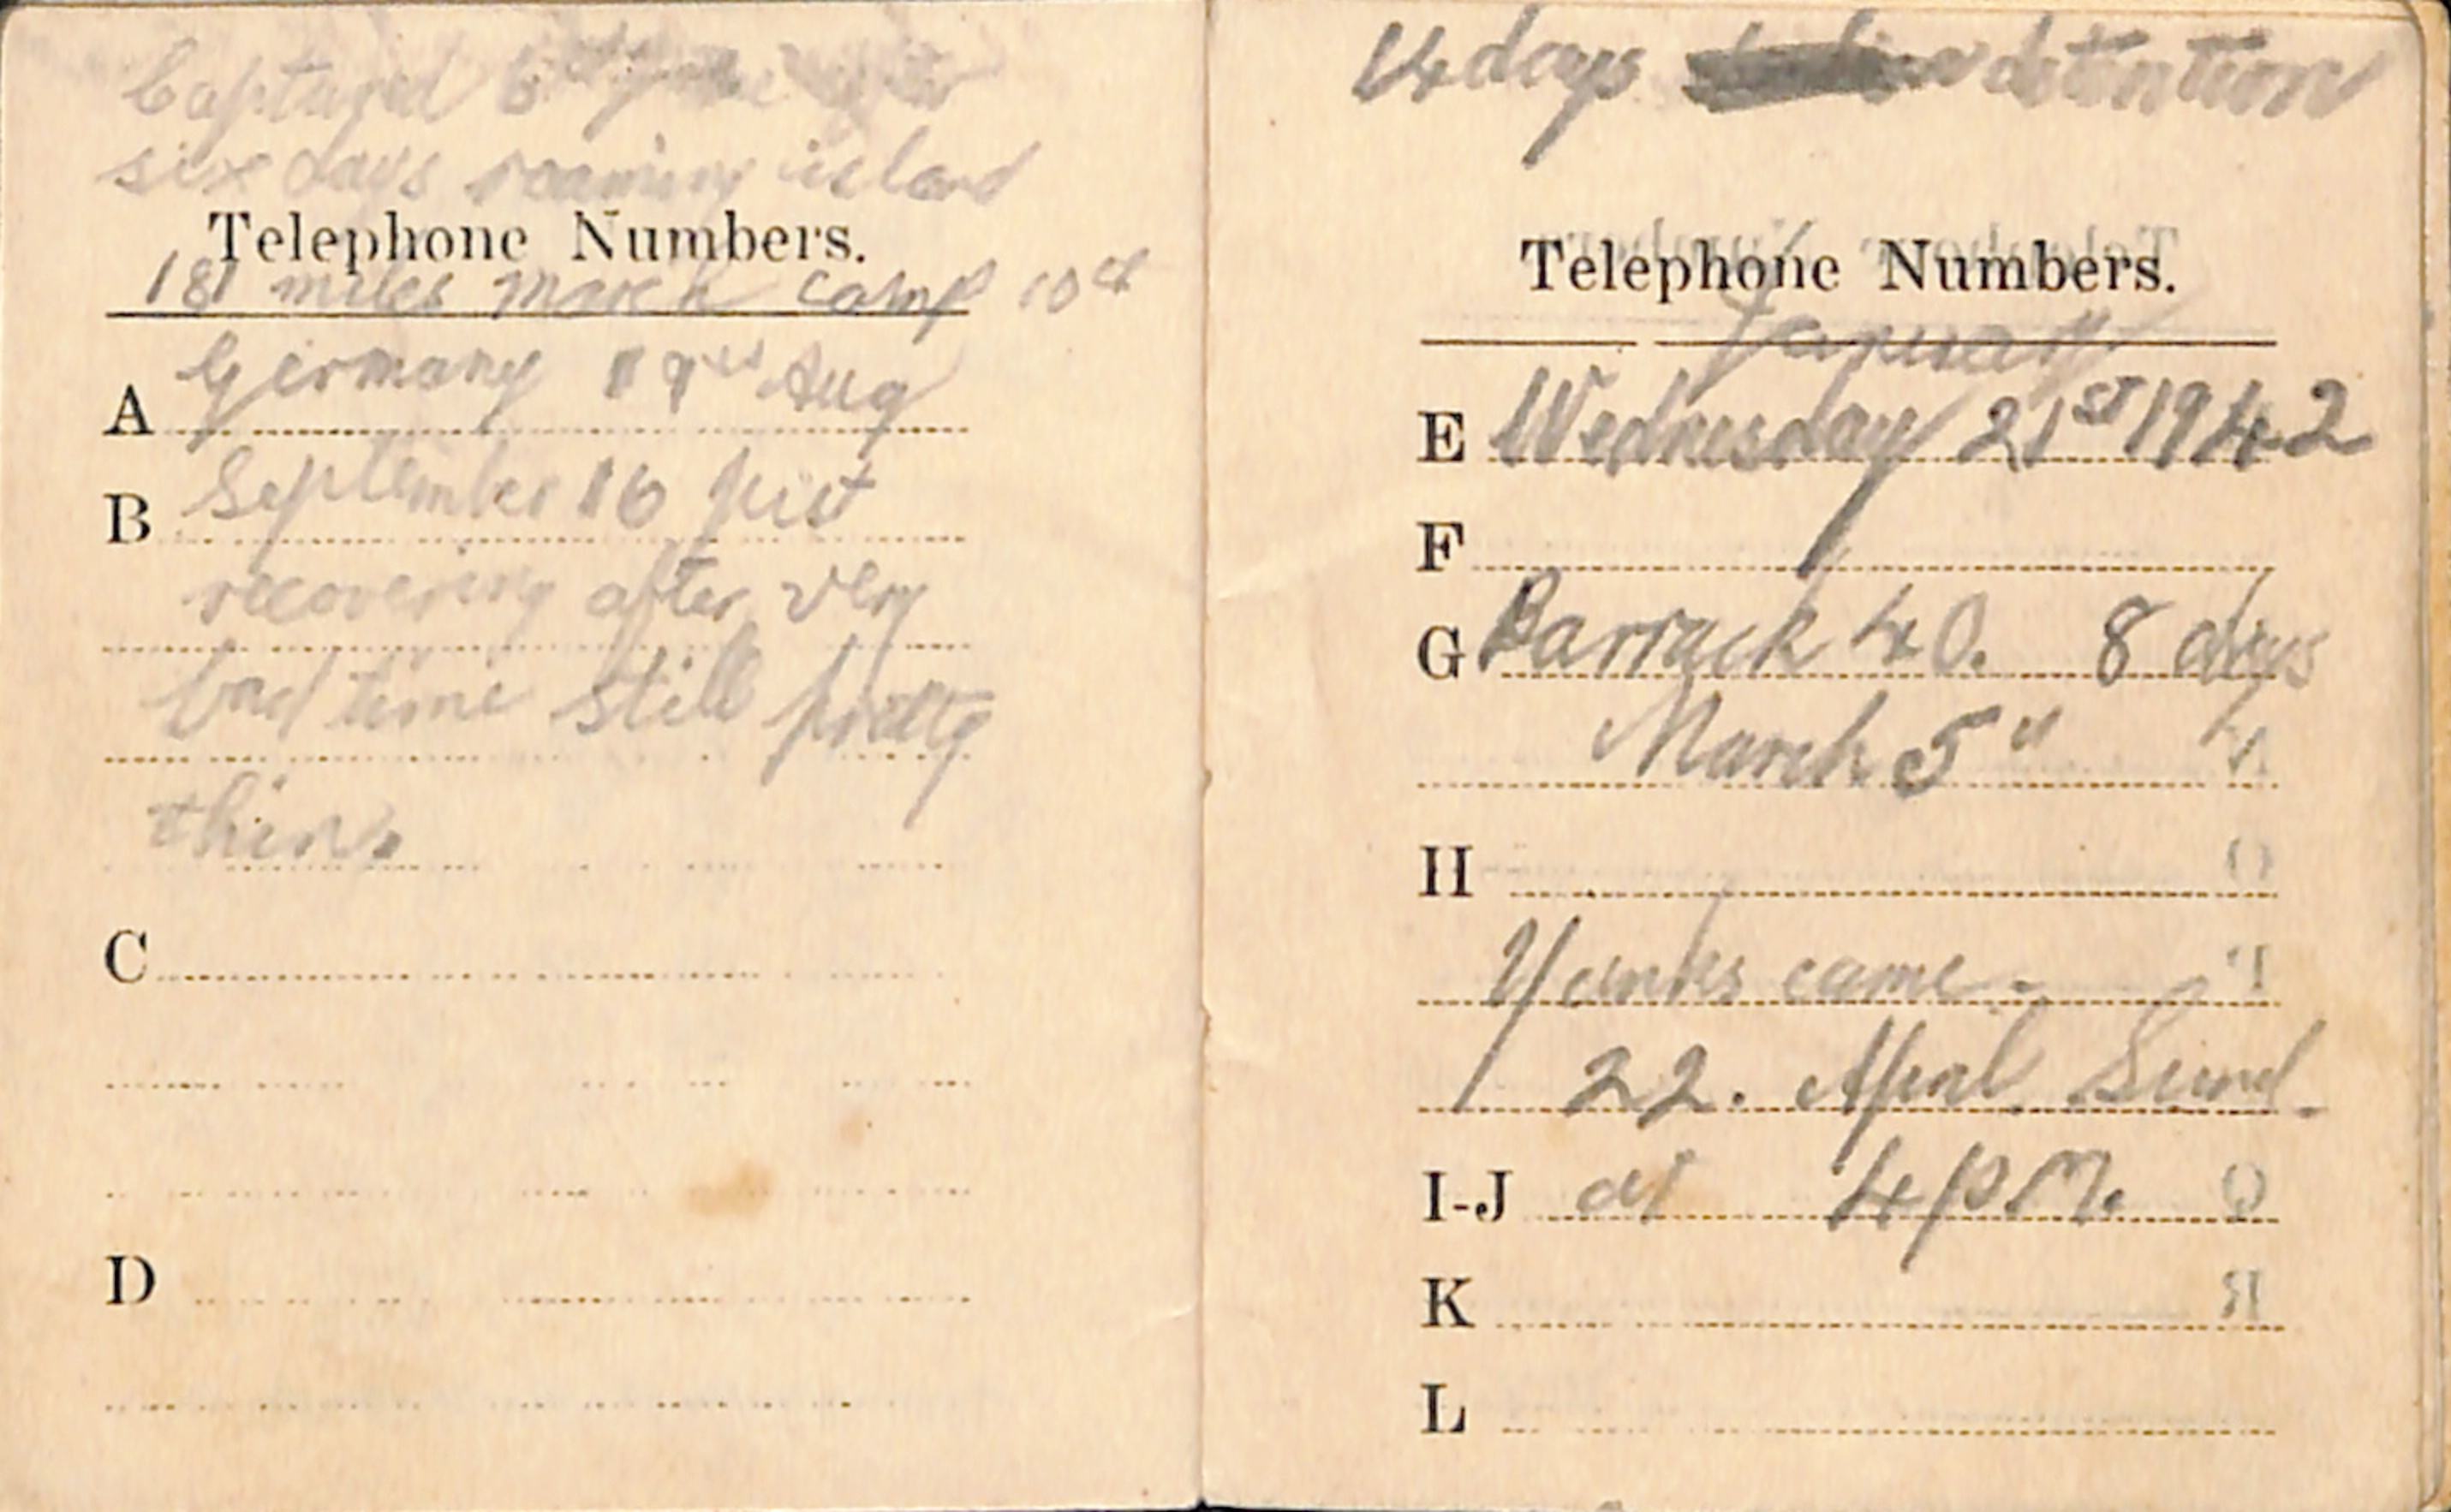 Captured 6th June after
six days roaming island
Telephone Numbers.
181 miles march camp 10th
A Germany 19th Aug
B September 16 just
recovering after very
bad time still pretty
thin.
C
D
14 days detention
Telephone Numbers.
January
E Wednesday 21ST 1942
F
G Barrack 40. 8 days
March 5"
H
Yanks came -
22. April Sund.
I-J at 4 p.m.
K
L